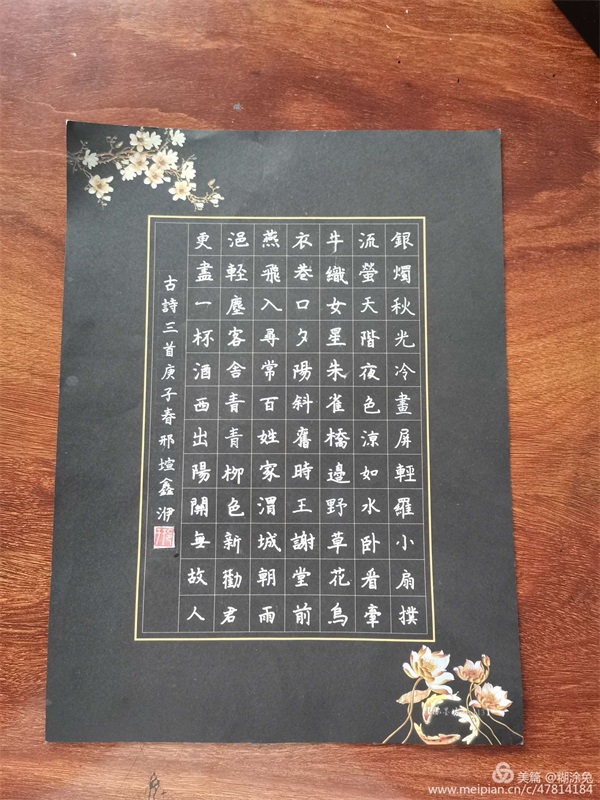 銀燭秋光冷畫屏輕羅小扇撲
流螢天階夜色涼如水卧看牽
牛織女星朱雀橋邊野草花烏
衣巷口夕陽斜舊時王謝堂前
燕飛入尋常百姓家渭城朝雨
浥輕塵客舍青青柳色新勸君
更盡一杯酒西出陽關無故人
古詩三首庚子春邢煊鑫
美篇 @糊涂兔
www.meipian.cn/c/47814184